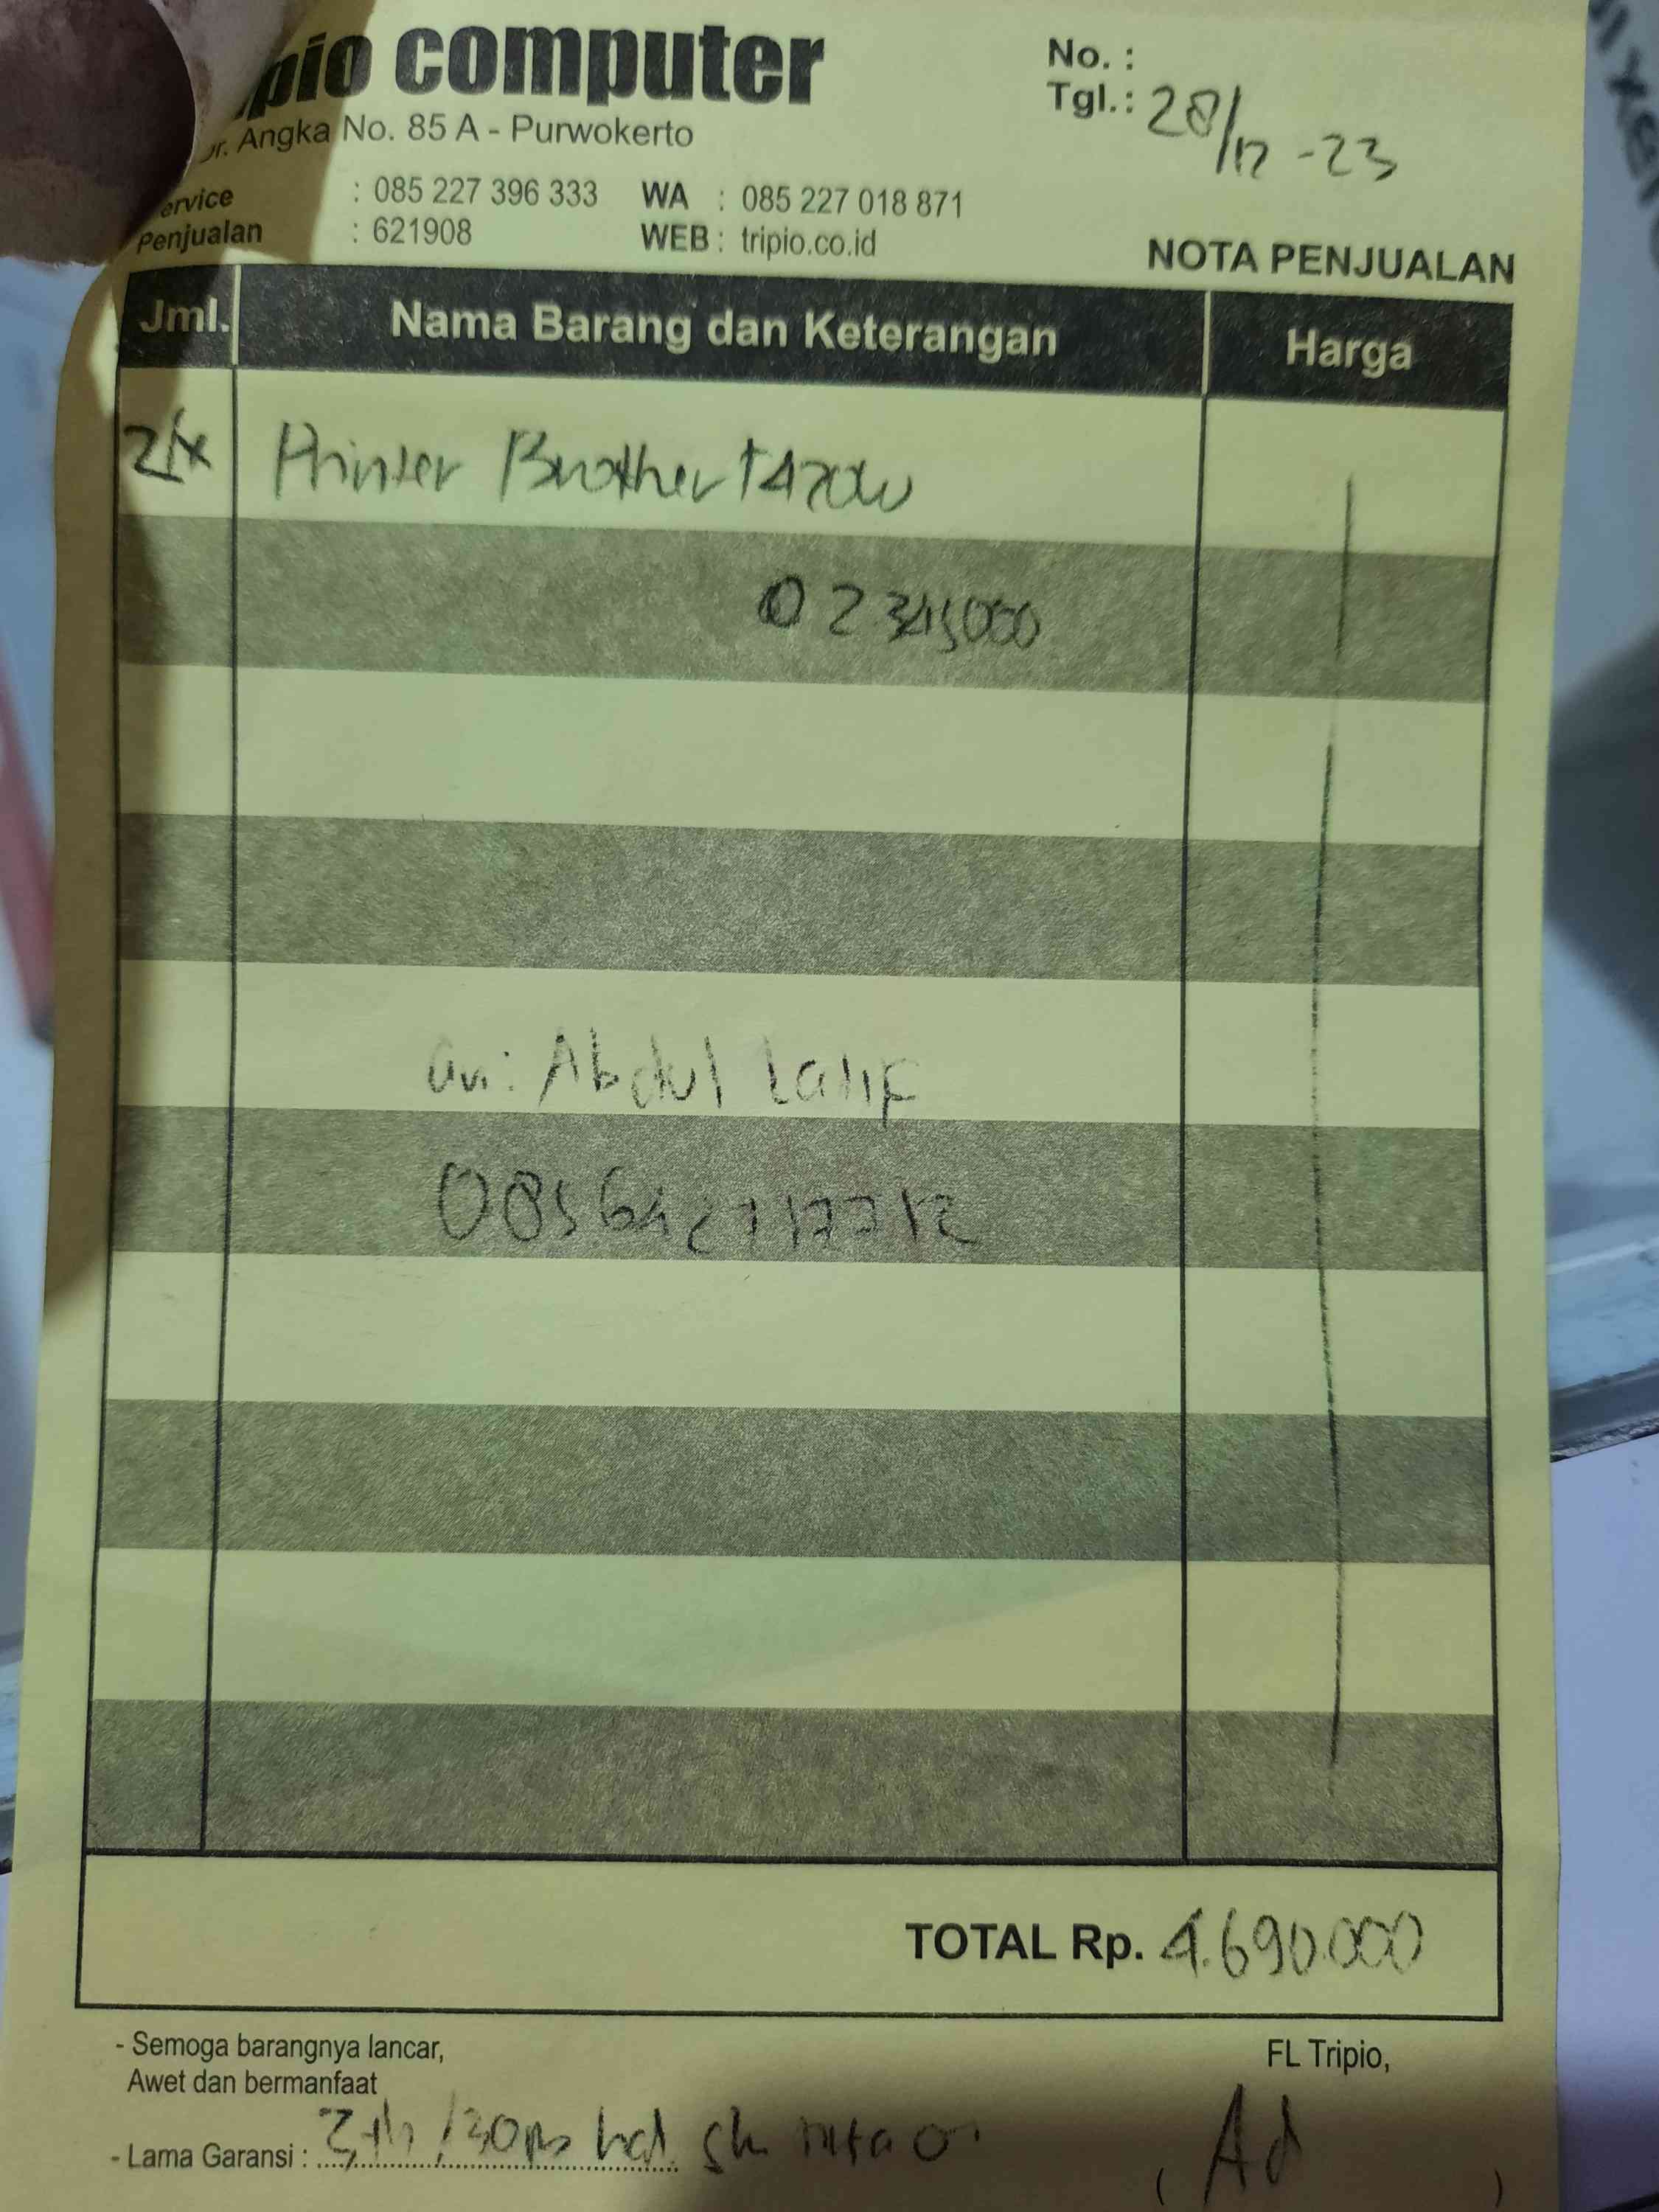 pio computer
Dr. Angka No. 85 A - Purwokerto
ervice : 085 227 396 333 WA : 085 227 018 871
Penjualan : 621908 WEB : tripio.co.id
No. :
Tgl.: 28/12 -23
NOTA PENJUALAN
Jml. Nama Barang dan Keterangan Harga
2 Printer Brother T420W
@ 2.345000
an: Abdul Latif
TOTAL Rp. 4.690.000
- Semoga barangnya lancar,
Awet dan bermanfaat
- Lama Garansi : 3th /30
FL Tripio,
( Ad )